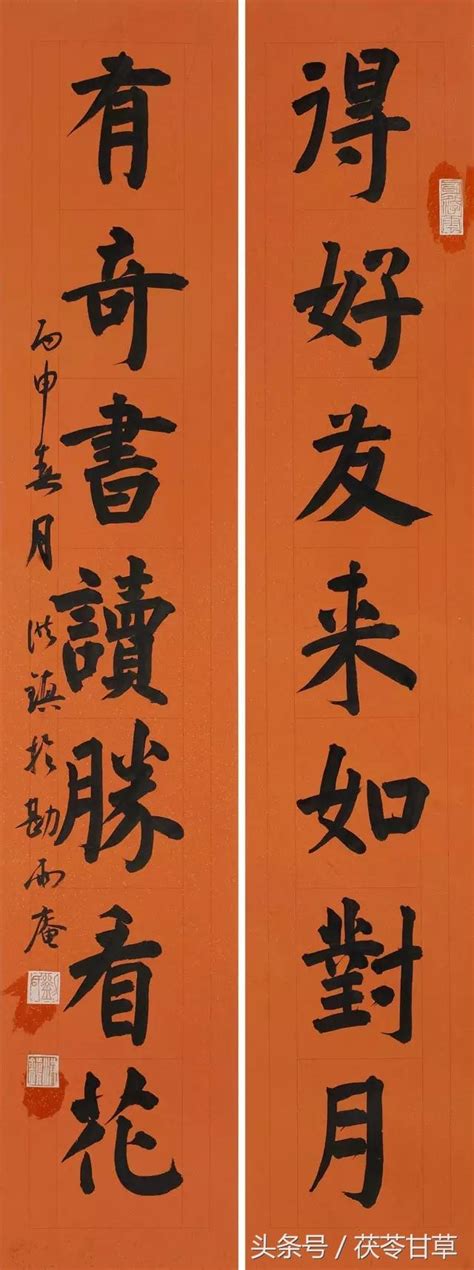 得好友来如對月
有奇書讀勝看花
丙申春月洪鎮於勘雨庵
头条号/茯苓甘草